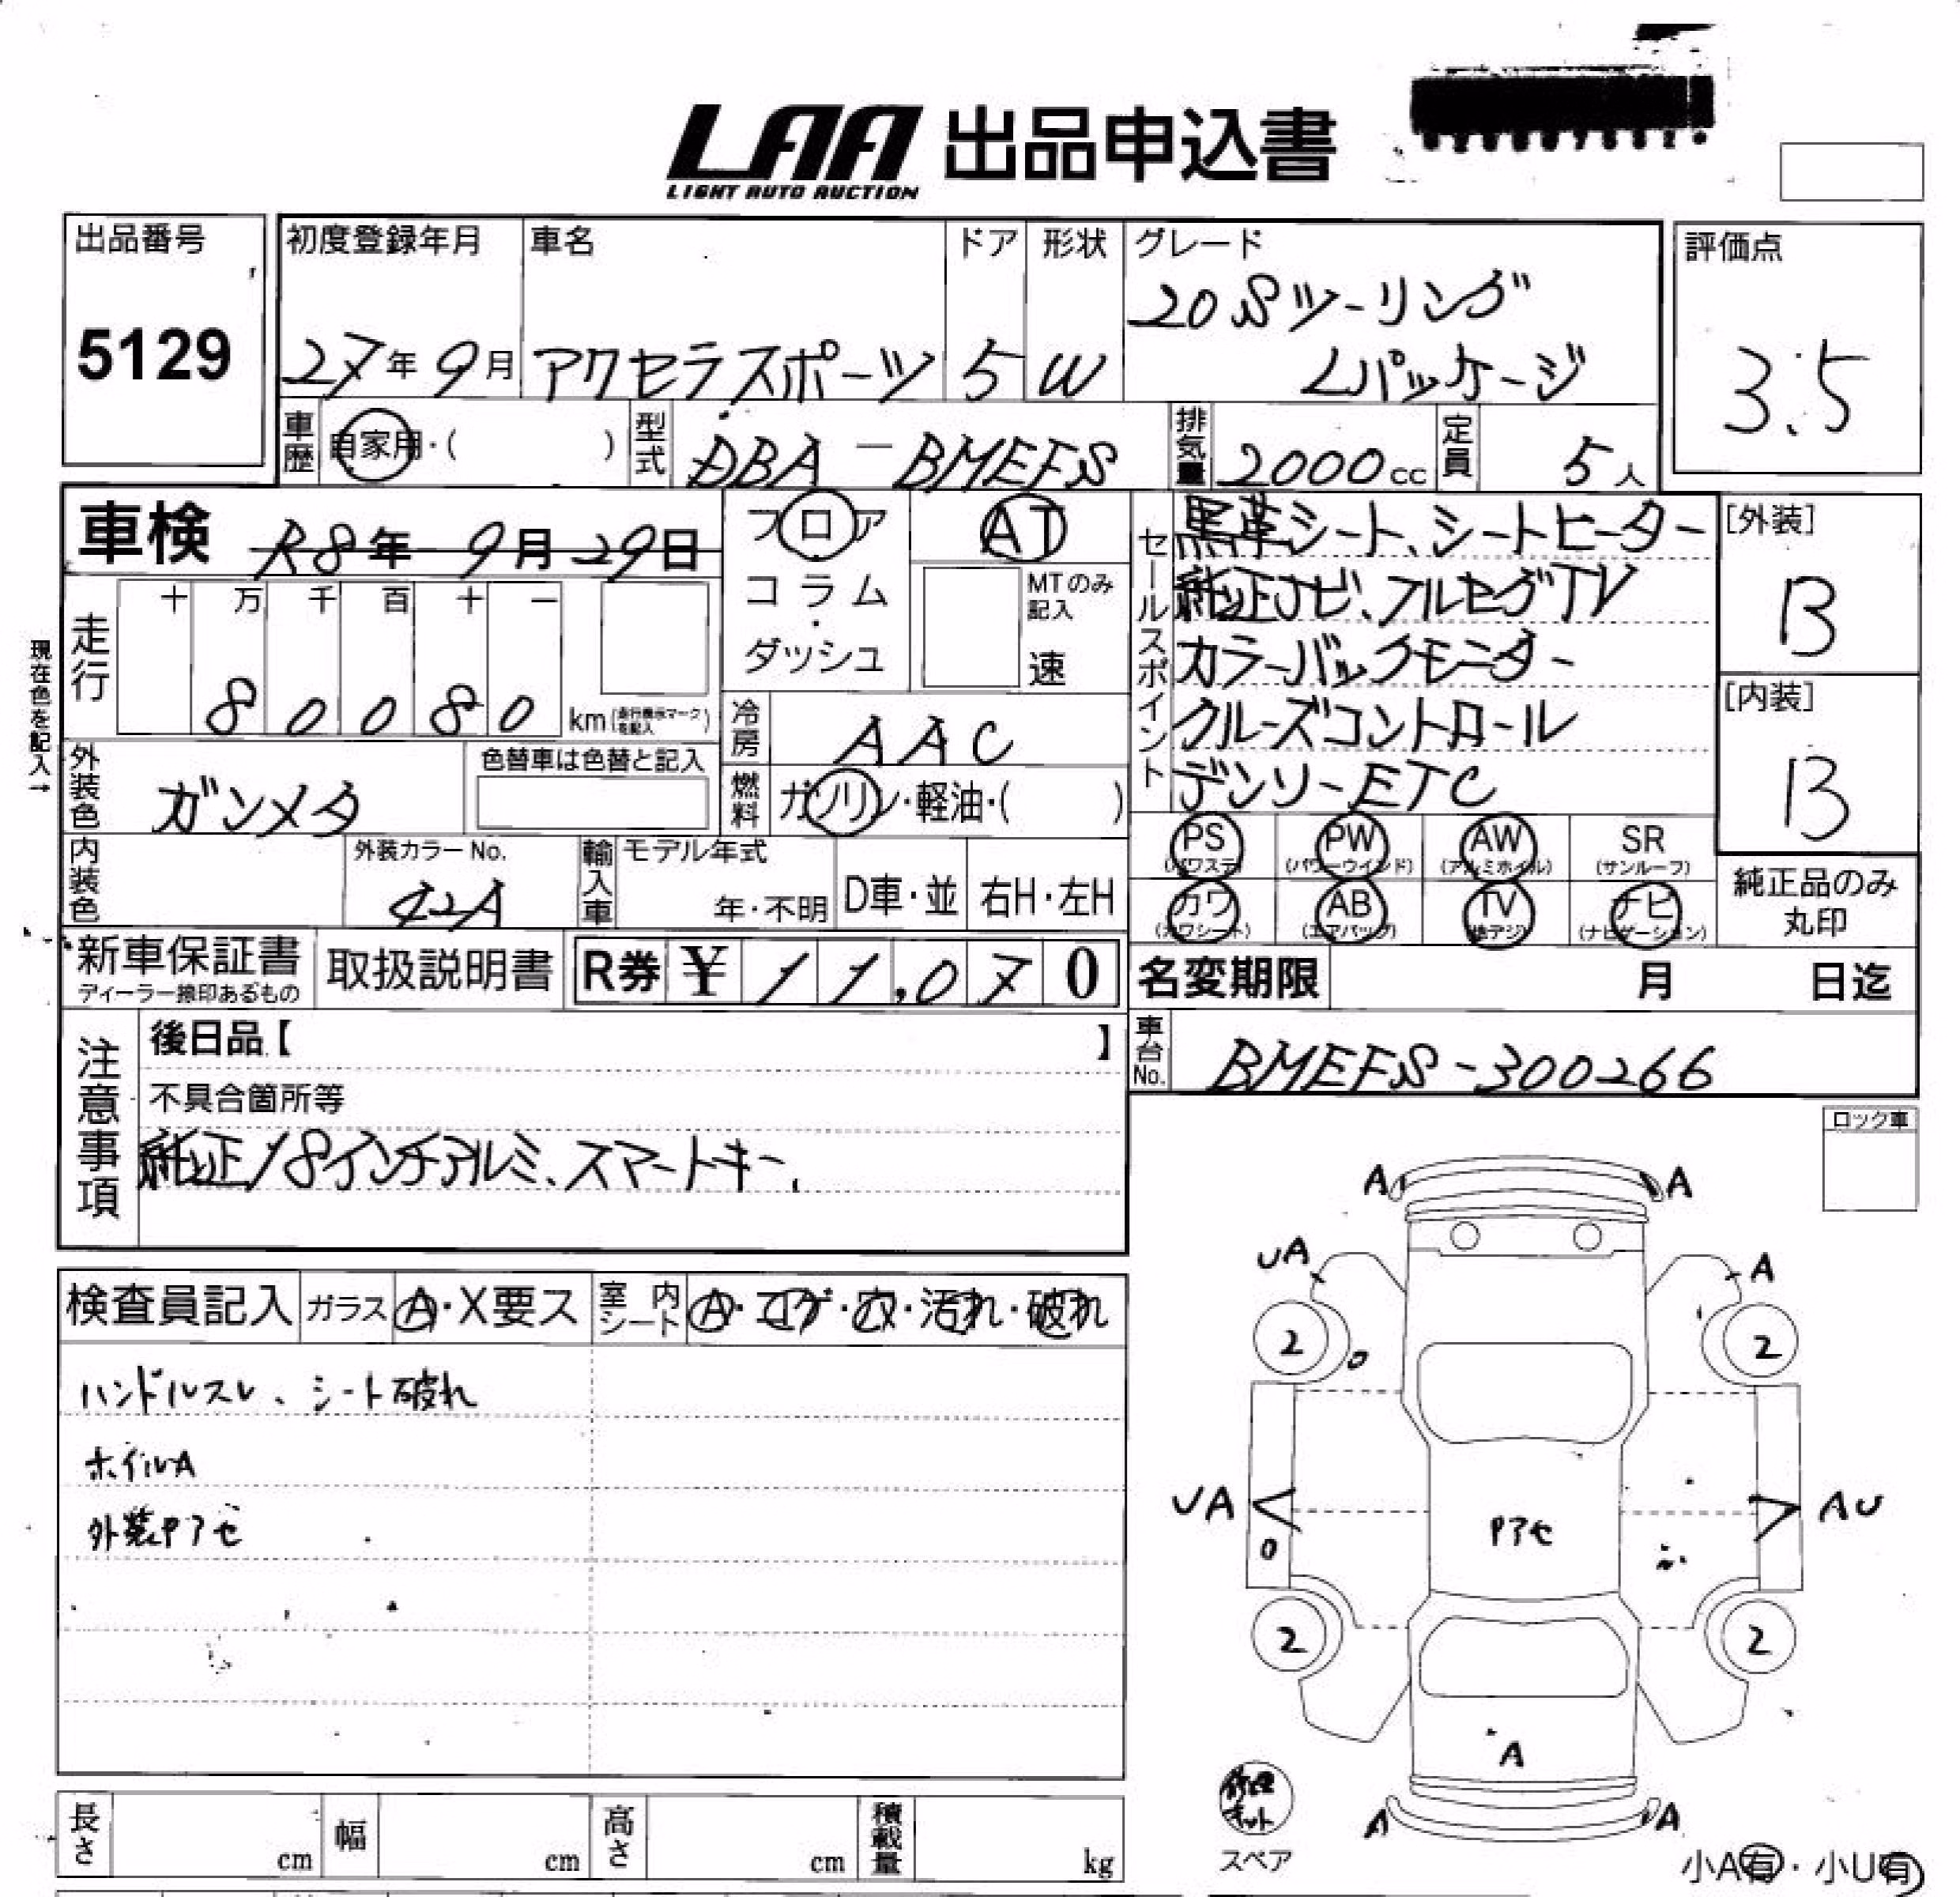 LAA 出品申込書
LIGHT AUTO AUCTION
出品番号
5129
初度登録年月
27年9月
車名
アクセラスポーツ
ドア
5
形状
W
グレード
20Sツーリング
Lパッケージ
評価点
3.5
車歴
自家用・( )
型式
DBA-BMEFS
排気量
2000cc
定員
5人
車検
R8年 9月29日
フロア
・
コラム
・
ダッシュ
AT
MTのみ
記入
速
セールスポイント
黒革シート、シートヒーター
純正ナビ、フルセグTV
カラーバックモニター
クルーズコントロール
デンソーETC
[外装]
B
[内装]
B
現在色を記入→
走行
十 万 千 百 十 一
8 0 0 8 0 km(走行表示マークを記入)
冷房
AAC
外装色
ガンメタ
色替車は色替と記入
燃料
ガソリン・軽油・( )
内装色
外装カラーNo.
42A
輸入車
モデル年式
年・不明
D車・並
右H・左H
PS
(パワステ)
PW
(パワーウインド)
AW
(アルミホイル)
SR
(サンルーフ)
カワ
(カワシート)
AB
(エアバッグ)
TV
(地デジ)
ナビ
(ナビゲーション)
純正品のみ
丸印
新車保証書
ディーラー捺印あるもの
取扱説明書
R券 ¥ 11,070
名変期限 月 日迄
注意事項
後日品【 】
不具合箇所等
純正18インチアルミ、スマートキー、
車台No.
BMEFS-300266
ロック車
検査員記入
ガラス
A・X要ス
室内シート
A・コゲ・穴・汚れ・破れ
ハンドルスレ、シート破れ
ホイルA
外装Pアセ
A A
UA A
2 0 2
UA AU
0
Pアセ
2 2
A
A A
修理キット
スペア
小A有・小U有
長さ cm
幅 cm
高さ cm
積載量 kg